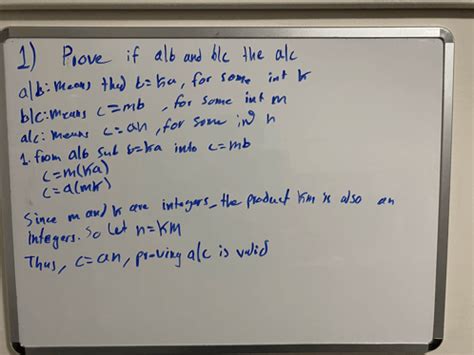 1) Prove if a|b and b|c the a|c
a|b: means that b=ka, for some int k
b|c: means c=mb, for some int m
a|c: means c=an, for some int n
1. from a|b sub b=ka into c=mb
c=m(ka)
c=a(mk)
Since m and k are integers, the product km is also an
integers. So let n=km
Thus, c=an, proving a|c is valid